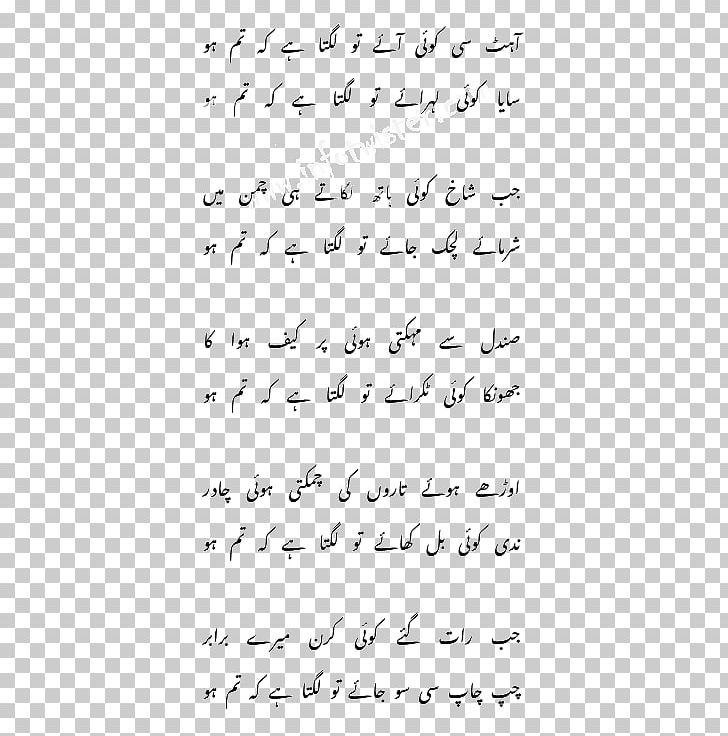 آہٹ سی کوئی آئے تو لگتا ہے کہ تم ہو
سایا کوئی لہرائے تو لگتا ہے کہ تم ہو
جب شاخ کوئی ہاتھ لگاتے ہی چمن میں
شرمائے لچک جائے تو لگتا ہے کہ تم ہو
صندل سے مہکتی ہوئی پر کیف ہوا کا
جھونکا کوئی ٹکرائے تو لگتا ہے کہ تم ہو
اوڑھے ہوئے تاروں کی چمکتی ہوئی چادر
ندی کوئی بل کھائے تو لگتا ہے کہ تم ہو
جب رات گئے کوئی کرن میرے برابر
چپ چاپ سی سو جائے تو لگتا ہے کہ تم ہو